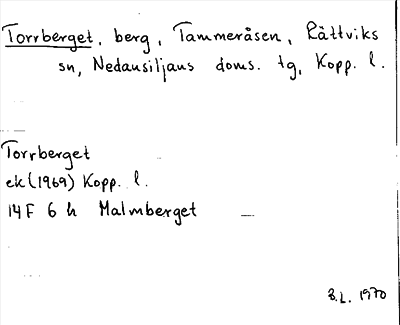 Torrberget, berg, Tammeråsen, Rättviks
sn, Nedansiljans doms. tg, Kopp. l.
Torrberget
ek (1969) Kopp. l.
14F 6 h Malmberget —
B.L. 1970